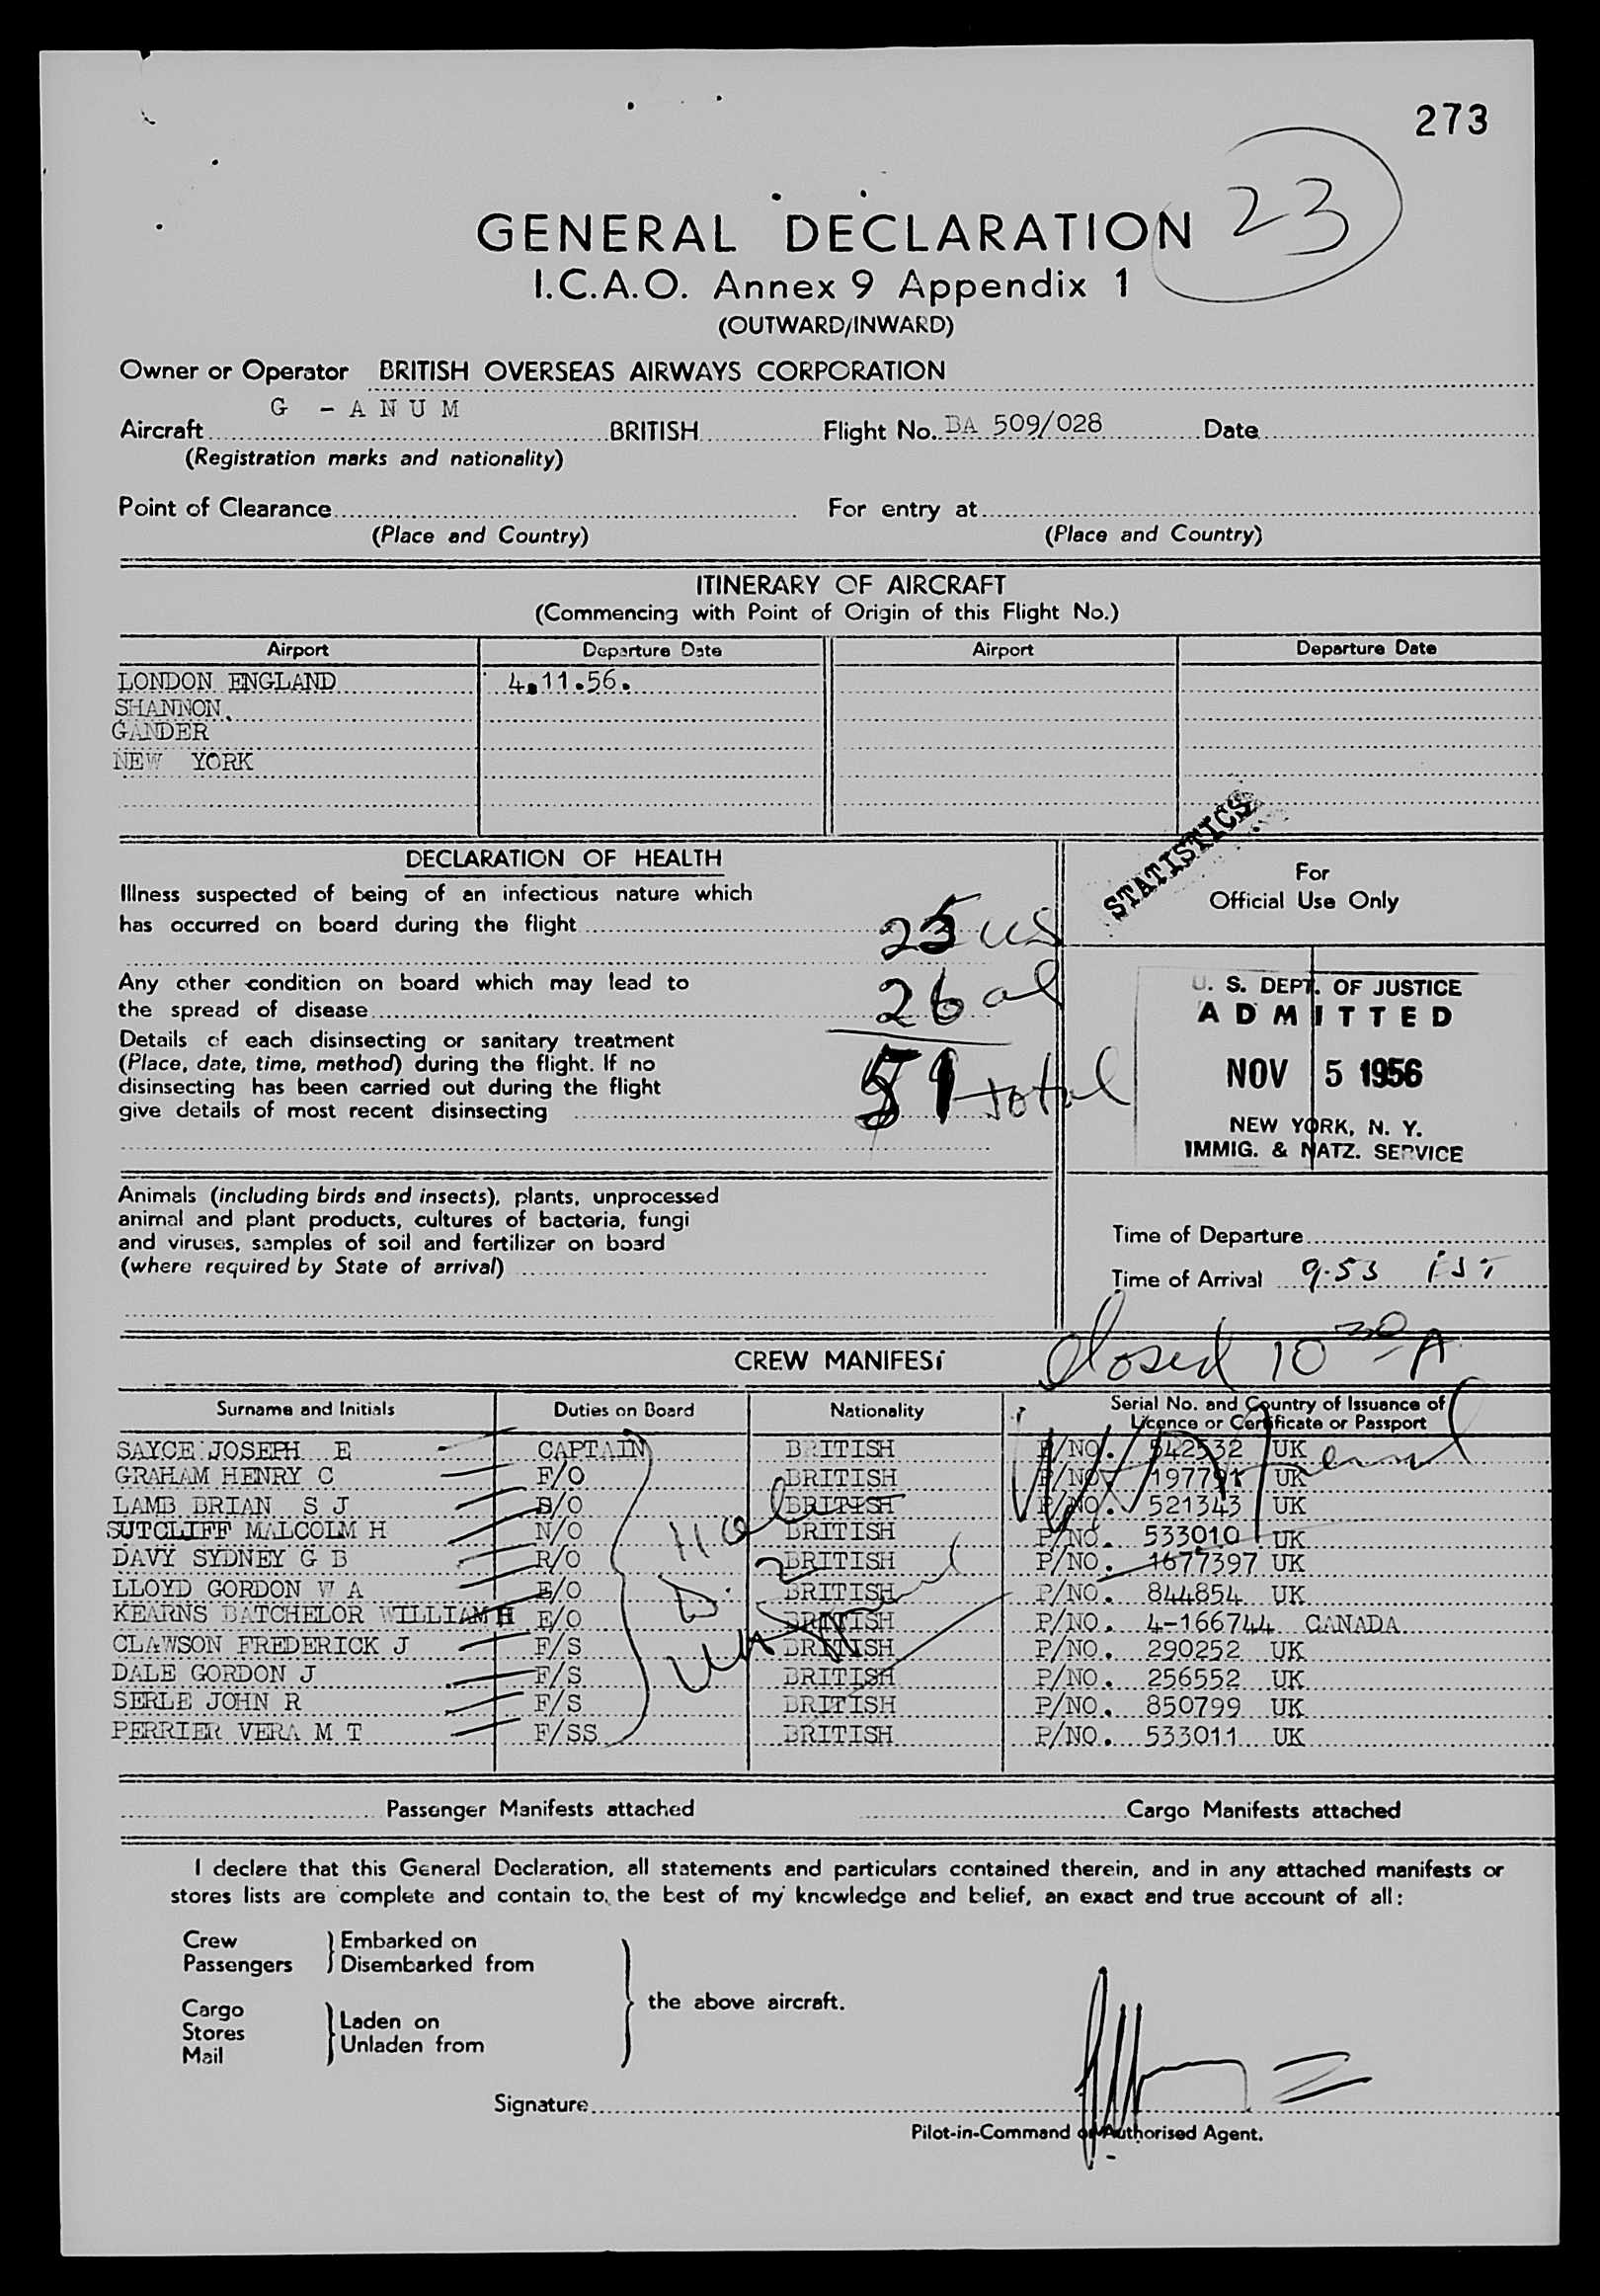 273
23
GENERAL DECLARATION
I.C.A.O. Annex 9 Appendix 1
(OUTWARD/INWARD)
Owner or Operator BRITISH OVERSEAS AIRWAYS CORPORATION
G - A N U M
Aircraft BRITISH Flight No. BA 509/028 Date
(Registration marks and nationality)
Point of Clearance For entry at
(Place and Country) (Place and Country)
ITINERARY OF AIRCRAFT
(Commencing with Point of Origin of this Flight No.)
Airport Departure Date Airport Departure Date
LONDON ENGLAND 4.11.56.
SHANNON.
GANDER
NEW YORK
STATISTICS
DECLARATION OF HEALTH
For
Official Use Only
Illness suspected of being of an infectious nature which
has occurred on board during the flight 25 US
Any other condition on board which may lead to
the spread of disease 26 al
Details of each disinsecting or sanitary treatment
(Place, date, time, method) during the flight. If no
disinsecting has been carried out during the flight
give details of most recent disinsecting
51 total
U. S. DEPT. OF JUSTICE
ADMITTED
NOV 5 1956
NEW YORK, N. Y.
IMMIG. & NATZ. SERVICE
Animals (including birds and insects), plants, unprocessed
animal and plant products, cultures of bacteria, fungi
and viruses, samples of soil and fertilizer on board
(where required by State of arrival)
Time of Departure
Time of Arrival 9.53
Closed 10 30 A
CREW MANIFEST
Surname and Initials Duties on Board Nationality Serial No. and Country of Issuance of
Licence or Certificate or Passport
SAYCE JOSEPH E CAPTAIN BRITISH P/NO. 542532 UK
GRAHAM HENRY C F/O BRITISH P/NO 197791 UK
LAMB BRIAN S J S/O BRITISH P/NO. 521343 UK
SUTCLIFF MALCOLM H N/O BRITISH P/NO. 533010 UK
DAVY SYDNEY G B R/O BRITISH P/NO. 1677397 UK
LLOYD GORDON W A E/O BRITISH P/NO. 844854 UK
KEARNS BATCHELOR WILLIAM H E/O BRITISH P/NO. 4-166744 CANADA
CLAWSON FREDERICK J F/S BRITISH P/NO. 290252 UK
DALE GORDON J F/S BRITISH P/NO. 256552 UK
SERLE JOHN R F/S BRITISH P/NO. 850799 UK
PERRIER VERA M T F/SS BRITISH P/NO. 533011 UK
Passenger Manifests attached Cargo Manifests attached
I declare that this General Declaration, all statements and particulars contained therein, and in any attached manifests or
stores lists are complete and contain to, the best of my knowledge and belief, an exact and true account of all:
Crew Embarked on
Passengers Disembarked from
the above aircraft.
Cargo
Stores Laden on
Mail Unladen from
Signature
Pilot-in-Command or Authorised Agent.